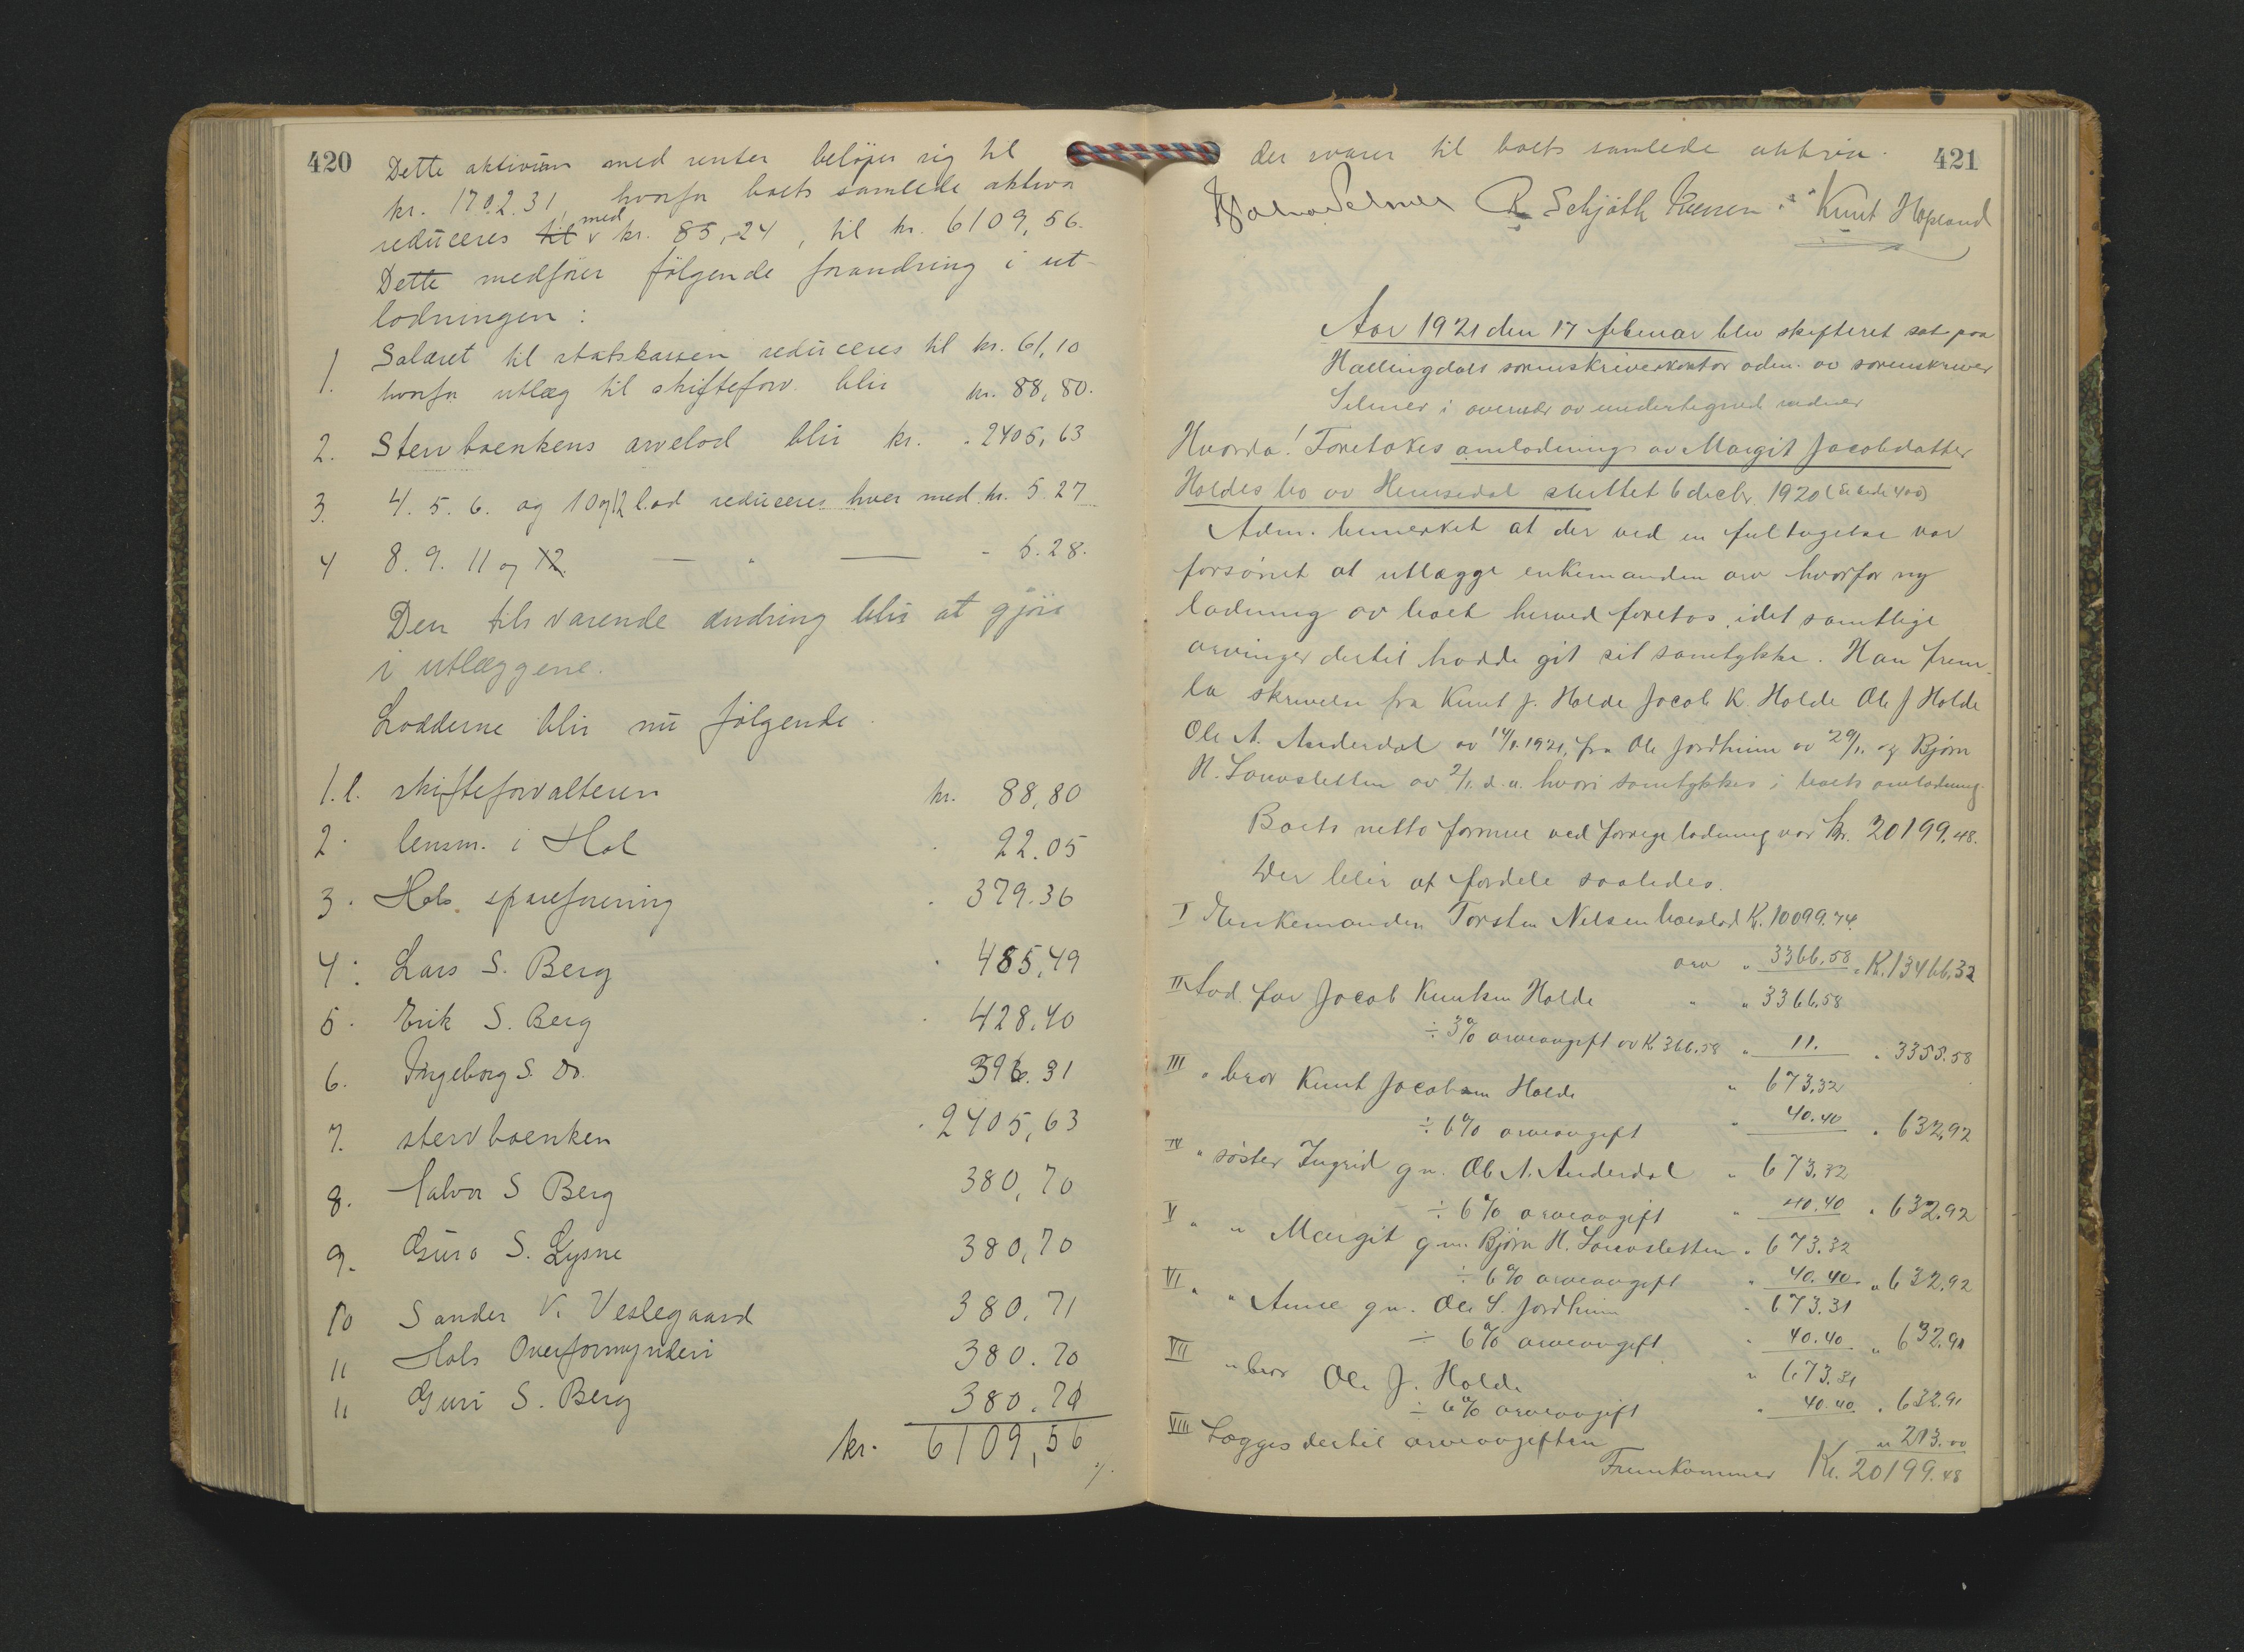 420
Dette aktivum med renter beløper sig til
kr. 1702.31, hvorfor boets samlede aktiva
reduceres til med kr. 85,24, til kr. 6109,56.
Dette medfører følgende forandring i ut-
lodningen:
1. Salæret til statskassen reduceres til kr. 61,10
hvorfor utlæg til skifteforv. blir kr. 88,80.
2. Stervboenkens arvelod blir kr. 2405,63
3. 4. 5. 6. og 10 og 12 lod reduceres hver med kr. 5.27
4 8. 9. 11 og 12. — " — - 5.28.
Den tilsvarende ændring blir at gjøre
i utlæggene.
Lodderne blir nu følgende.
1.l. skifteforvalteren kr. 88,80
2. lensm. i Hol 22.05
3. Hols spareforening 379.36
4. Lars S. Berg 485,49
5. Erik S. Berg 428.40
6. Ingeborg S. Do. 396.31
7. stervboenken 2405,63
8. Halvor S Berg 380,70
9. Guro S. Lysne 380,70
10 Sander V. Veslegaard 380.71
11 Hols Overformynderi 380.70
11 Guri S. Berg 380.71
kr. 6109,56
421
der svarer til boets samlede aktiva.
Selmer Schjøth Iversen Knut
Aar 1921 den 17 februar blev skifteret sat paa
Hallingdals sorenskriverkontor adm. av sorenskriver
Selmer i overvær av undertegnede vidner
Hvorda! Foretokes omlodning av Margit Jacobsdatter
Holdes bo av Hemsedal sluttet 6 decbr. 1920 (Se side 400)
Adm. bemerket at der ved en feiltagelse var
forsømt at utlægge enkemanden arv hvorfor ny
lodning av boet herved foretas, idet samtlige
arvinger dertil hadde git sit samtykke. Han frem-
la skrivelse fra Knut J. Holde Jacob K. Holde Ole J Holde
Ole A. Anderdal av 14/1. 1921, fra Ole Jordheim av 29/1. og Bjørn
H. av 2/1. d.a. hvori samtykkes i boets omlodning.
Boets netto formue ved forrige lodning var kr. 20199,48.
Der blir at fordele saaledes.
I Enkemanden Torsten Nilsen boeslod K. 10099.74
arv " 3366.58 " K. 13466,32
II Lod for Jacob Knutsen Holde " " 3366.58
÷ 3% arveavgift av K 366.58 " 11. " 3355.58
III " bror Knut Jacobsen Holde " 673,32
÷ 6% arveavgift " 40.40 " 632,92
IV " søster Ingrid gm. Ole A. Anderdal " 673,32
÷ 6% arveavgift " 40.40 " 632.92
V " " Margit gm. Bjørn H. " 673.32
÷ 6% arveavgift " 40.40 " 632.92
VI " " Anne gm. Ole S. Jordheim " 673.31
÷ 6% arveavgift " 40.40 " 632.91
VII " bror Ole J. Holde " 673.31
÷ 6% arveavgift " 40.40 " 632.91
VIII Lægges dertil arveavgiften " 213.00
Fremkommer Kr. 20199.48